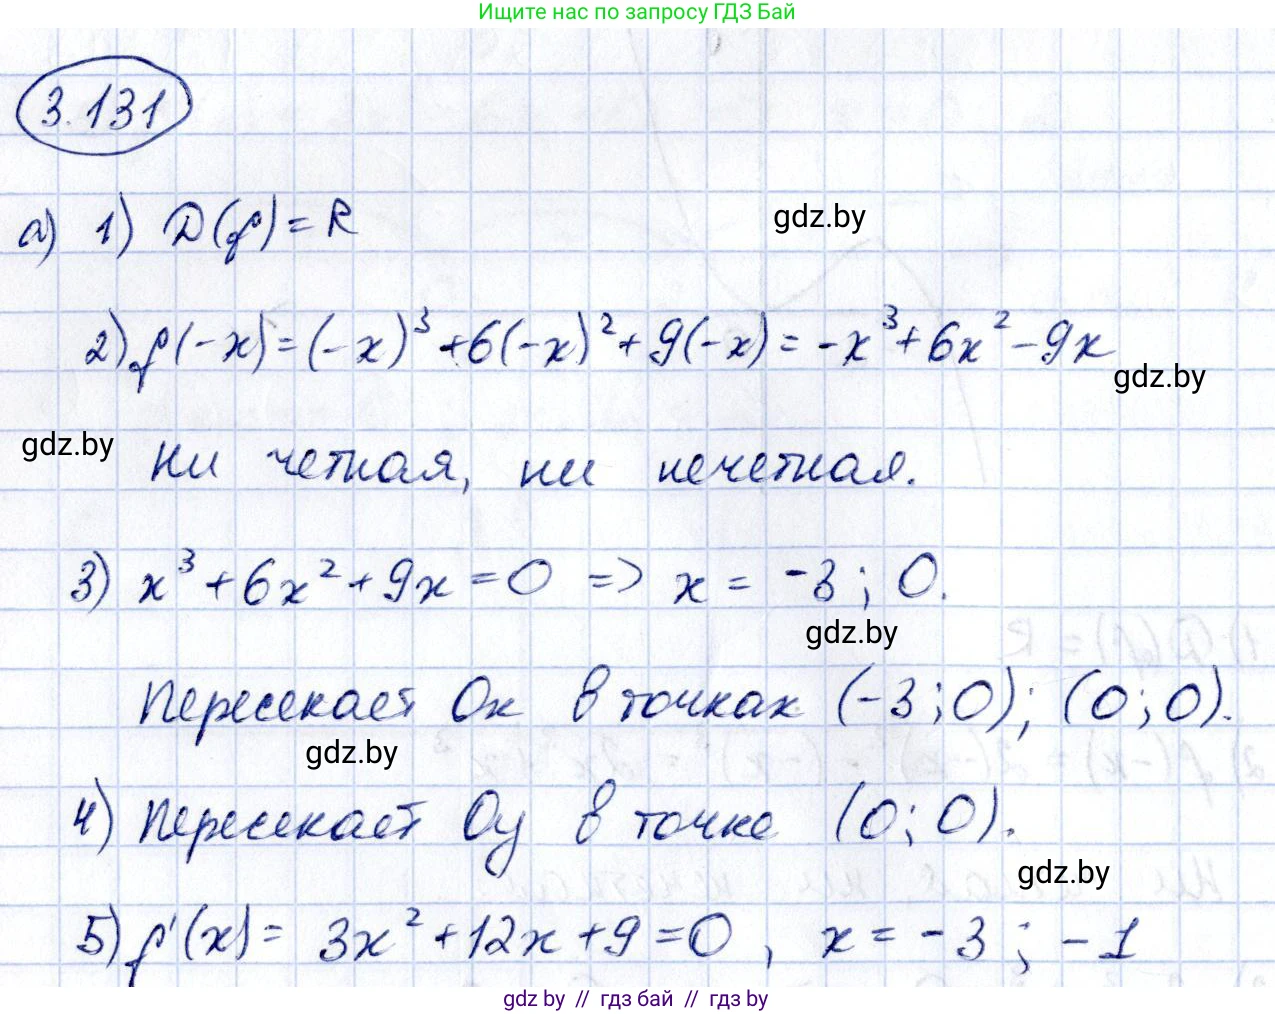 Ищите нас по запросу ГДЗ Бай
3.131
а) 1) D(f) = R
gdz.by
2) f(-x) = (-x)³ + 6(-x)² + 9(-x) = -x³ + 6x² - 9x
gdz.by
gdz.by
Ни четная, ни нечетная.
3) x³ + 6x² + 9x = 0 => x = -3; 0.
gdz.by
Пересекает Ox в точках (-3; 0); (0; 0).
gdz.by
4) Пересекает Oy в точке (0; 0).
gdz.by
5) f'(x) = 3x² + 12x + 9 = 0, x = -3; -1
gdz by // гдз бай // гдз by